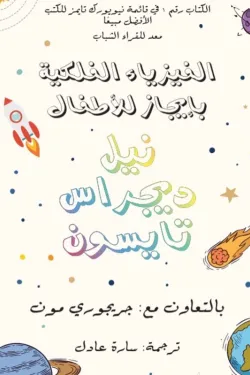 الكتاب رقم ١ في قائمة نيويورك تايمز للكتب
الأفضل مبيعًا
معد للقراء الشباب
الفيزياء الفلكية
بإيجاز للأطفال
نيل
ديجراس
تايسون
بالتعاون مع: جريجوري مون
ترجمة: سارة عادل